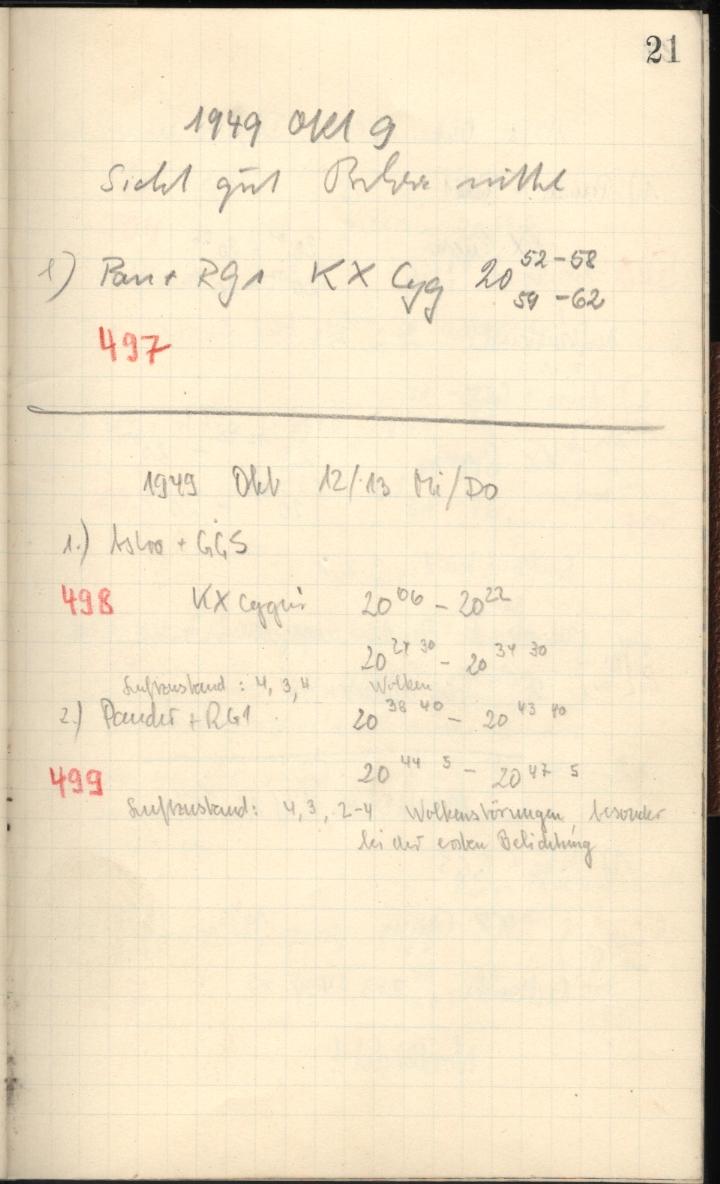 21
1949 Okt 9
Sicht gut Ruhe mittel
1) Pan + RG1 KX Cyg 20 52-58
59-62
497
1949 Okt 12/13 Mi/Do
1.) Astro + GG5
498 KX Cygni 20 06 - 20 22
20 24 30 - 20 34 30
Luftzustand : 4, 3, 4 Wolken
2.) Pander + RG1 20 38 40 - 20 43 40
499 20 44 5 - 20 47 5
Luftzustand: 4, 3, 2-4 Wolkenstörungen besonder
bei der ersten Belichtung